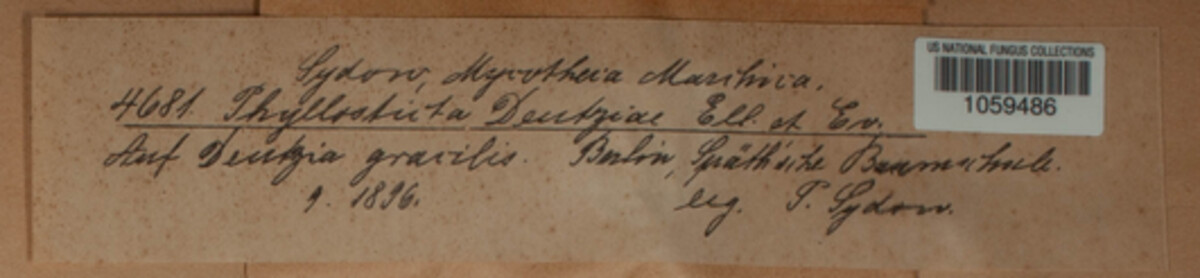 Sydow, Mycotheca Marchica.
US NATIONAL FUNGUS COLLECTIONS
1059486
4681. Phyllosticta Deutziae Ell. et Ev.
Auf Deutzia gracilis. Berlin, Späth'sche Baumschule.
9. 1896. leg. P. Sydow.